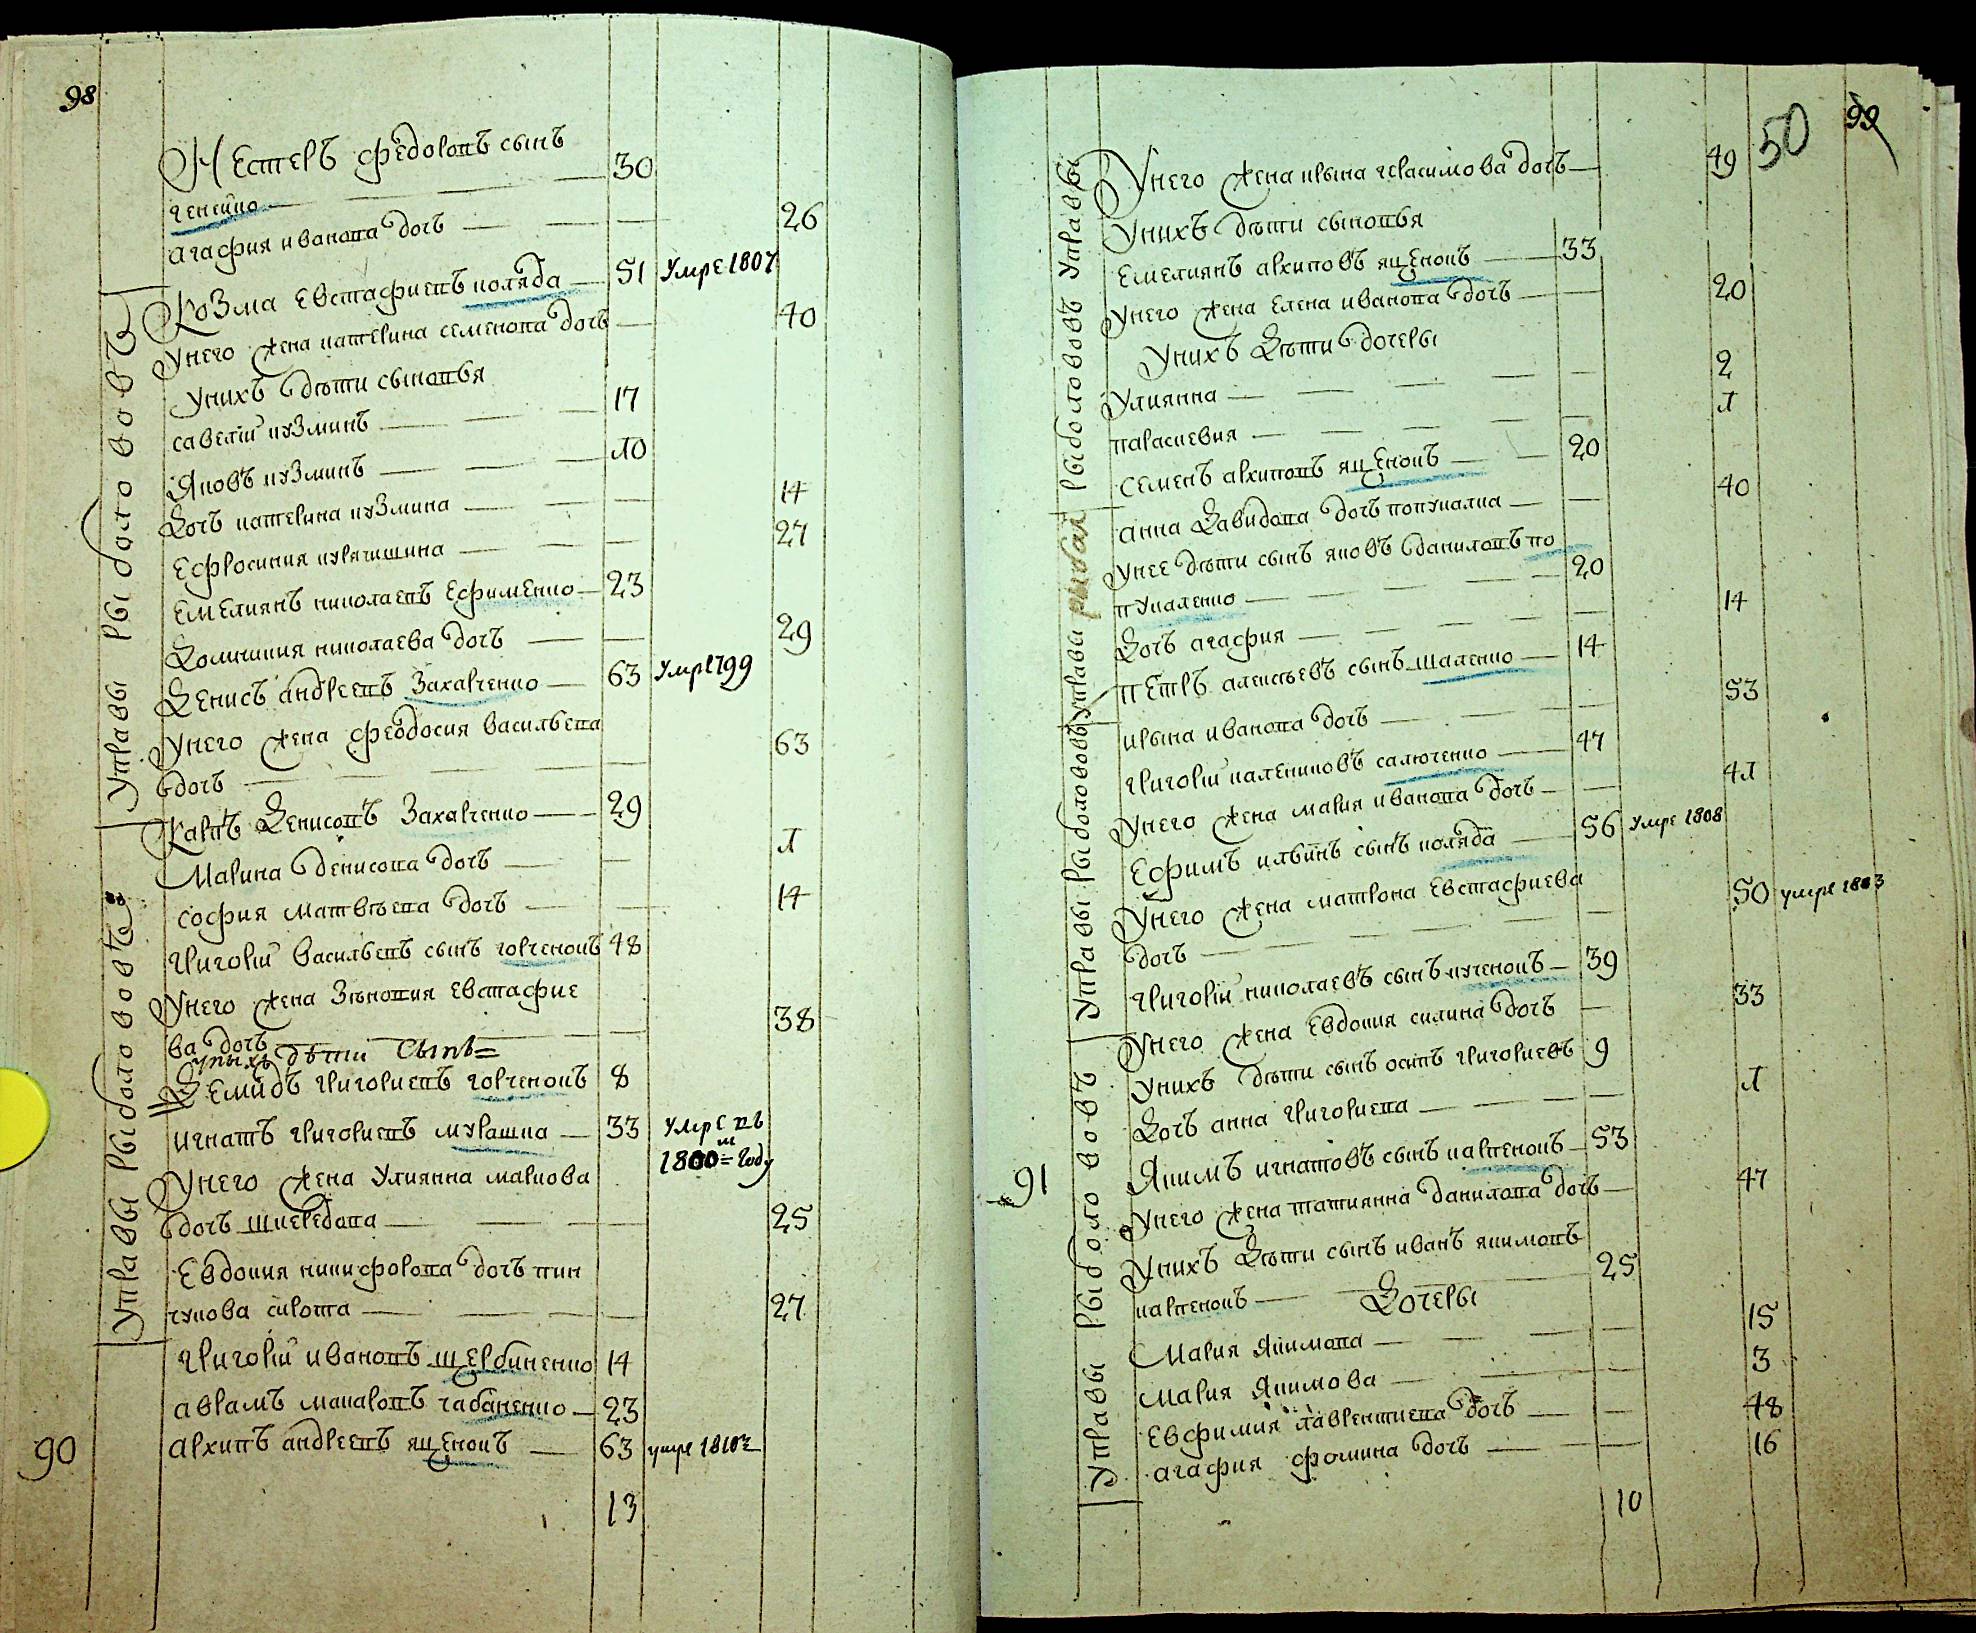 98
Нестеръ федоровъ сынъ
генейко 30
агафия иванова дочь 26
Козма Евстафиевъ коляда 51 умре 1807
унего жена катерина семенова дочь 40
унихъ дѣти сыновья
савелїй кузминъ 17
Яковъ кузминъ 10
дочь катерина кузмина 14
Ефросиния курячишина 27
Емелиянъ николаевъ Ефименко 23
домникия николаева дочь 29
денисъ андреевъ Захарченко 63 умре 1799
унего жена феодосия васильева
дочь 63
карпъ денисовъ Захарченко 29
Марина денисова дочь 1
софия матвѣева дочь 14
григорїй васильевъ сынъ горченокъ 48
унего жена Зѣновия евстафие
ва дочь 38
унихъ дѣти сынъ
демидъ григориевъ горченокъ 8
игнатъ григориевъ мурашка 33 умре въ
1800=м году
унего жена улиянна маркова
дочь шкередова 25
Евдокия никифорова дочь пин
чукова сирота 27
григорїй ивановъ щербиненко 14
аврамъ макаровъ чабаненко 23
90
архипъ андреевъ ященокъ 63 умре 1810г
13
управы рыболововъ
управы рыболововъ
99
50
унего жена ирына герасимова дочь 49
унихъ дѣти сыновья
Емелиянъ архиповъ ященокъ 33
унего жена елена иванова дочь 20
унихъ дѣти дочеры
улиянна 2
параскевия 1
семенъ архиповъ ященокъ 20
анна давидова дочь попукалка 40
унее дѣти сынъ яковъ даниловъ по
пукаленко 20
дочь агафия 14
петръ алексѣевъ сынъ шаленко 14
ирына иванова дочь 53
григорїй калениковъ салюченко 47
унего жена мария иванова дочь 41
Ефимъ ильинъ сынъ коляда 56 умре 1808
унего жена матрона евстафиева
дочь 50 умре 1803
григорїй николаевъ сынъ кученокъ 39
унего жена Евдокия силина дочь 33
унихъ дѣти сынъ осипъ григориевъ 9
дочь анна григориева 1
Якимъ игнатовъ сынъ карпенокъ 53
91
унего жена татиянна данилова дочь 47
унихъ дѣти сынъ иванъ якимовъ
карпенокъ 25
дочеры
Мария Якимова 15
мария Якимова 3
Евфимия лаврентиева дочь 48
агафия фомина дочь 16
10
управы рыболововъ
управы рыбал
управы рыболововъ
управы рыболововъ